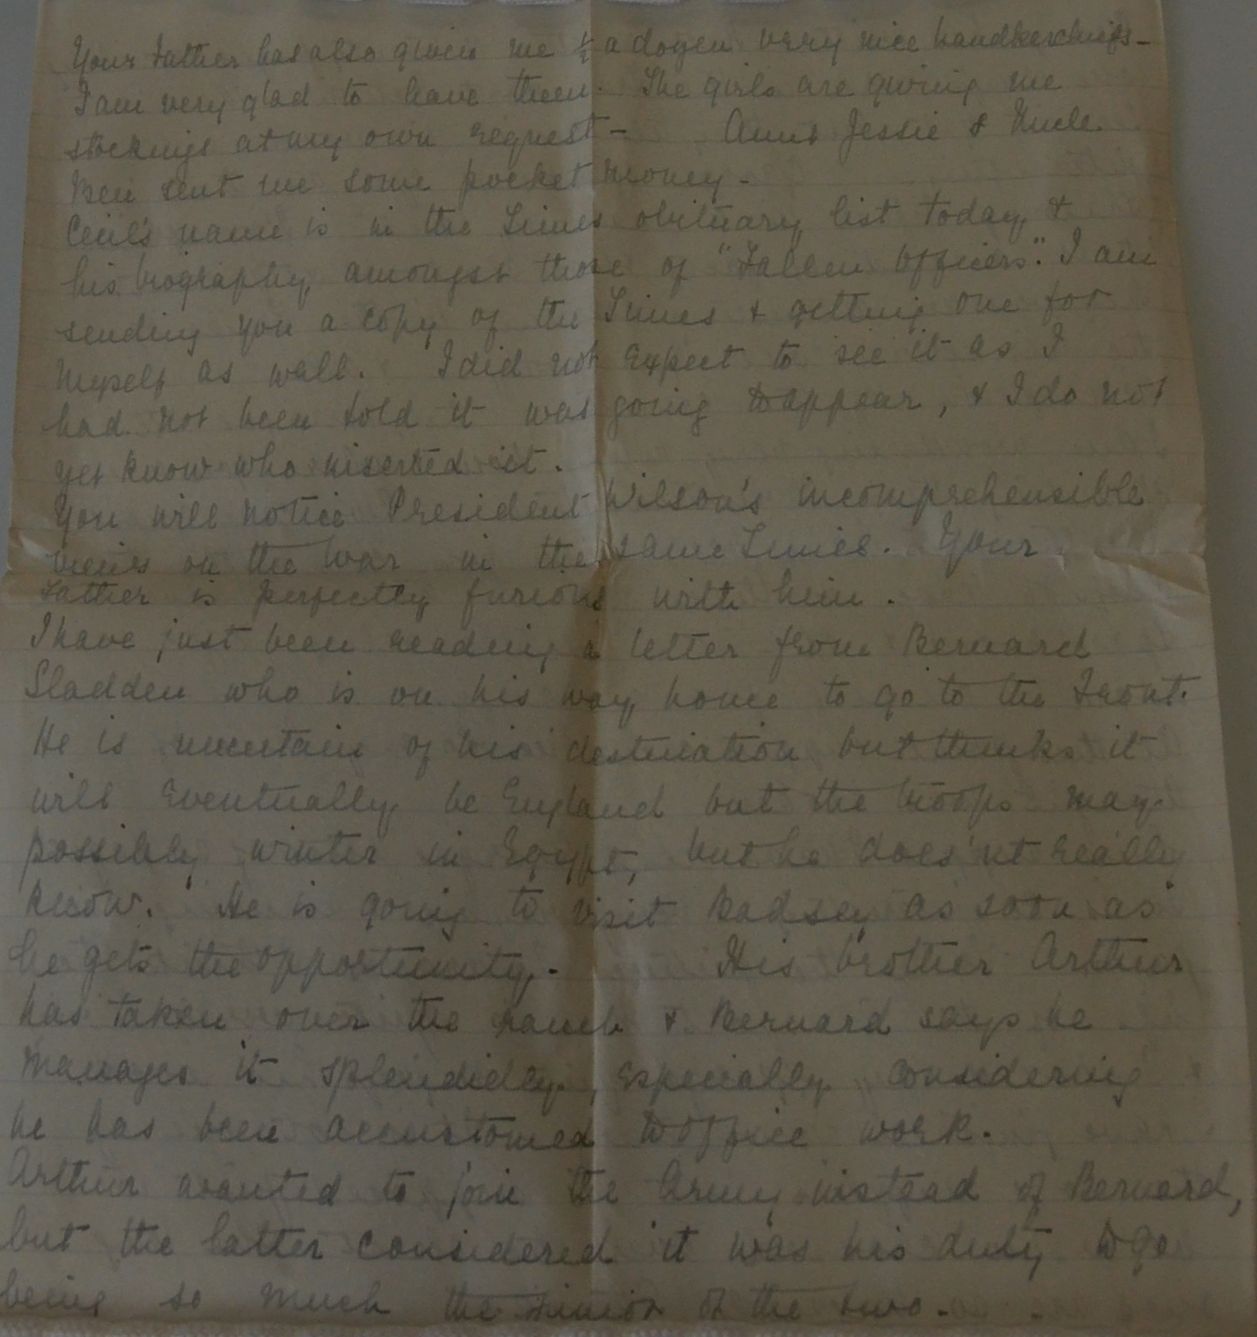 Your Father has also given me ½ a dozen very nice handkerchiefs -
I am very glad to have them. The girls are giving me
stockings at my own request - Aunt Jessie & Uncle
Ben sent me some pocket money -
Cecil's name is in the Times obituary list today &
his biography amongst those of "Fallen Officers". I am
sending you a copy of the Times & getting one for
myself as well. I did not expect to see it as I
had not been told it was going to appear, & I do not
yet know who inserted it.
You will notice President Wilson's incomprehensible
views on the War in the same Times. Your
Father is perfectly furious with him.
I have just been reading a letter from Bernard
Sladden who is on his way home to go to the Front.
He is uncertain of his destination but thinks it
will eventually be England but the troops may
possibly winter in Egypt, but he does'nt really
know. He is going to visit Badsey as soon as
he gets the opportunity. His brother Arthur
has taken over the ranch & Bernard says he
manages it splendidly, especially considering
he has been accustomed to office work.
Arthur wanted to join the Army instead of Bernard,
but the latter considered it was his duty to go
being so much the of the two.